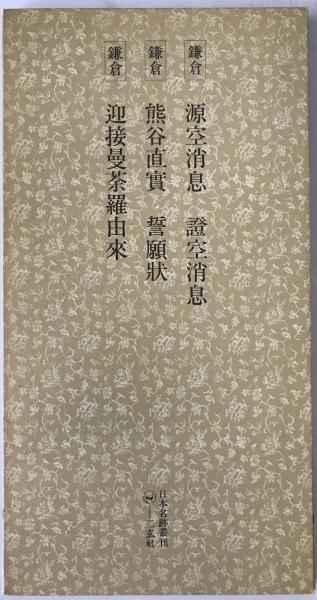 鎌倉 源空消息 證空消息
鎌倉 熊谷直實 誓願狀
鎌倉 迎接曼荼羅由來
日本名跡叢刊
二玄社